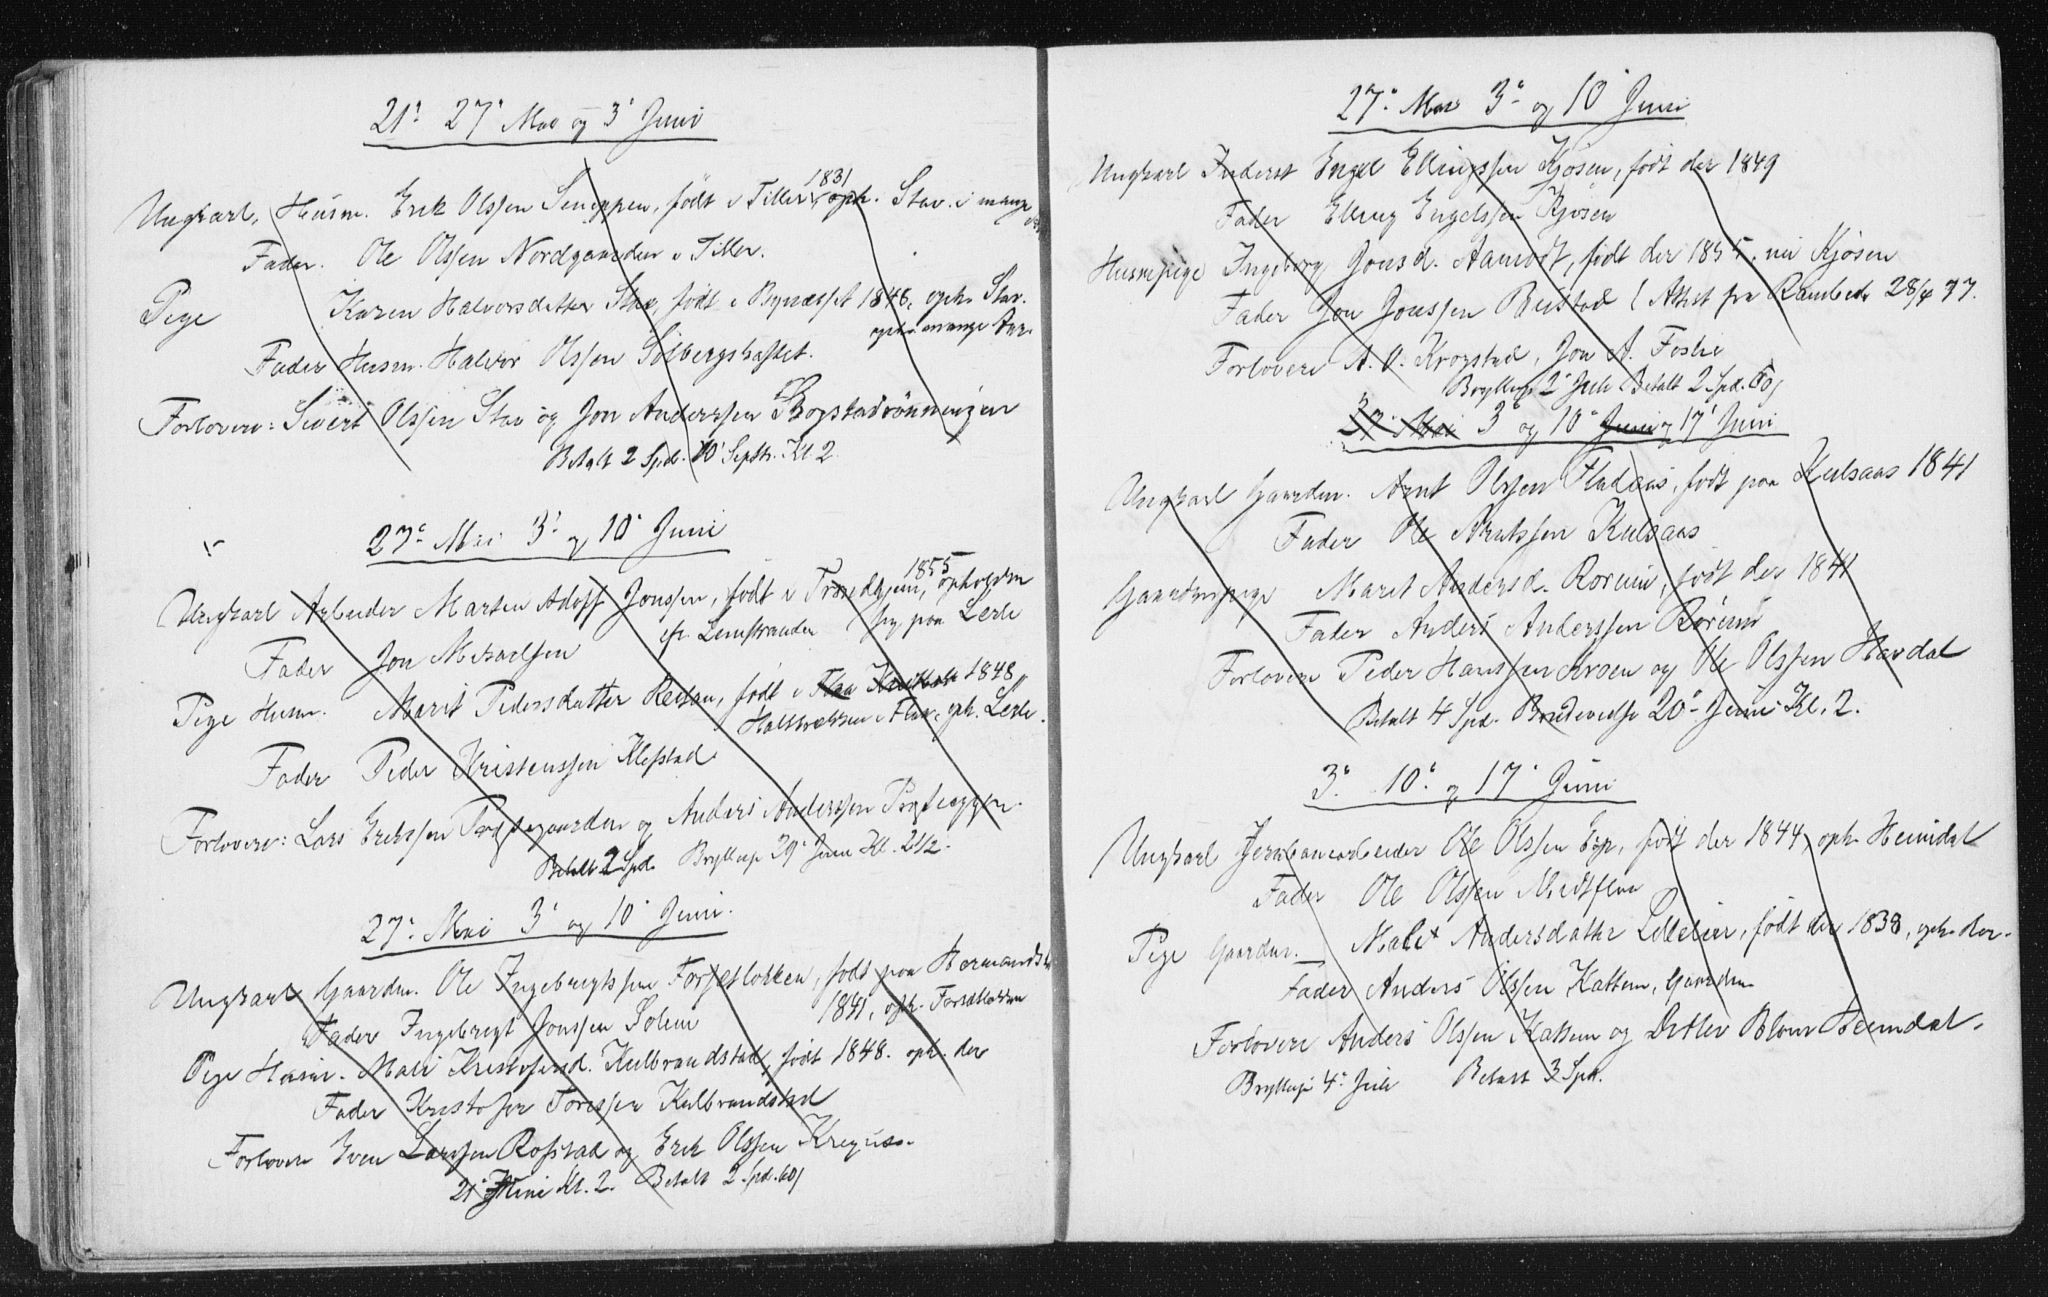 21' 27' Mai og 3' Juni
Ungkarl, Husm. Erik Olssen, født i Tiller 1831, oph. Stav. i mange
Fader. Ole Olssen Nordgaarden i Tiller.
Pige Karen Halvorsdatter Stav, født i Bynæsset 1848, oph. Stav.
oph. mange Aar.
Fader Husm. Halvor Olssen Solbergshaftet.
Forlovere: Sivert Olssen Stav og Jon Anderssen Bogstadrönningen
Betalt 2 Spd. 10' Septr. Kl 2
27' Mai 3' og 10' Juni
Ungkarl Arbeider Morten Adolf Jonssen, født i Trondhjem, 1855, opholden
sig paa Lerli
Fader Jon Mikaelsen
Pige Husm. Marit Pedersdatter, født i Flaa 1848
i Flaa, oph. Lerli.
Fader Peder Kristenssen Klefstad
Forlovere: Lars Erikssen og Anders Anderssen
Betalt 2 Spd. Bryllup 29' Juni Kl. 2 1/2.
27' Mai 3' og 10' Juni.
Ungkarl Gaardm. Ole Ingebrigtssen Forsetløkken, født paa
1841, oph. Forsetløkken
Fader Ingebrigt Jonssen Solem
Pige Husm. Mali Kristofersd. Kulbrandstad, født 1848. oph. der
Fader Kristofer Toressen Kulbrandstad
Forlovere Even Larssen Rofstad og Erik Olssen
21' Juni Kl. 2. Betalt 2 Spd.
27' Mai 3' og 10' Juni
Ungkarl Inderst Engel Ellingssen Kjøsen, født der 1849
Fader Elling Engelssen Kjøsen
Husmpige Ingeborg Jonsd. Aamodt, født der 1855, nu Kjøsen
Fader Jon Jonssen (Attest fra 28/4 77.
Forlovere A. O. Krogstad, Jon A. Foslie
Bryllup 2' Juli Betalt 2 Spd.
27' Mai 3' og 10' Juni og 17' Juni
Ungkarl Gaardm. Arnt Olssen Fladaas, født paa Kulsaas 1841
Fader Ole Arntssen Kulsaas
Gaardmspige Marit Andersd. Rørmir, født der 1841
Fader Anders Anderssen Rørmir
Forlovere Peder Hanssen Kroen og Ole Olssen Havdal
Betalt 4 Spd. Brudevielse 20' Juni Kl. 2.
3' 10' og 17' Juni
Ungkarl Jernbanearbeider Ole Olssen, født der 1844, oph. Heimdal
Fader Ole Olssen
Pige Gaardm. Malet Andersdatter, født der 1838, oph. der.
Fader Anders Olssen Kattem, Gaardm.
Forlovere Anders Olssen Kattem og Ditlev Blom Heimdal.
Bryllup 4' Juli Betalt 3 Spd.